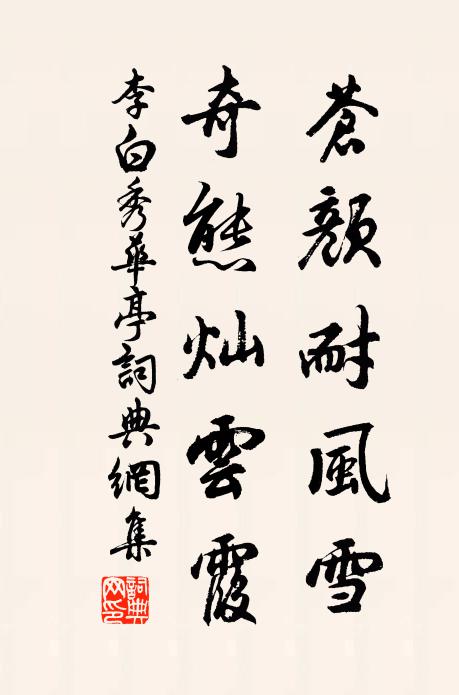 蒼顏耐風雪
奇態灿雲霞
李白秀華亭詞典網集
詞典網印